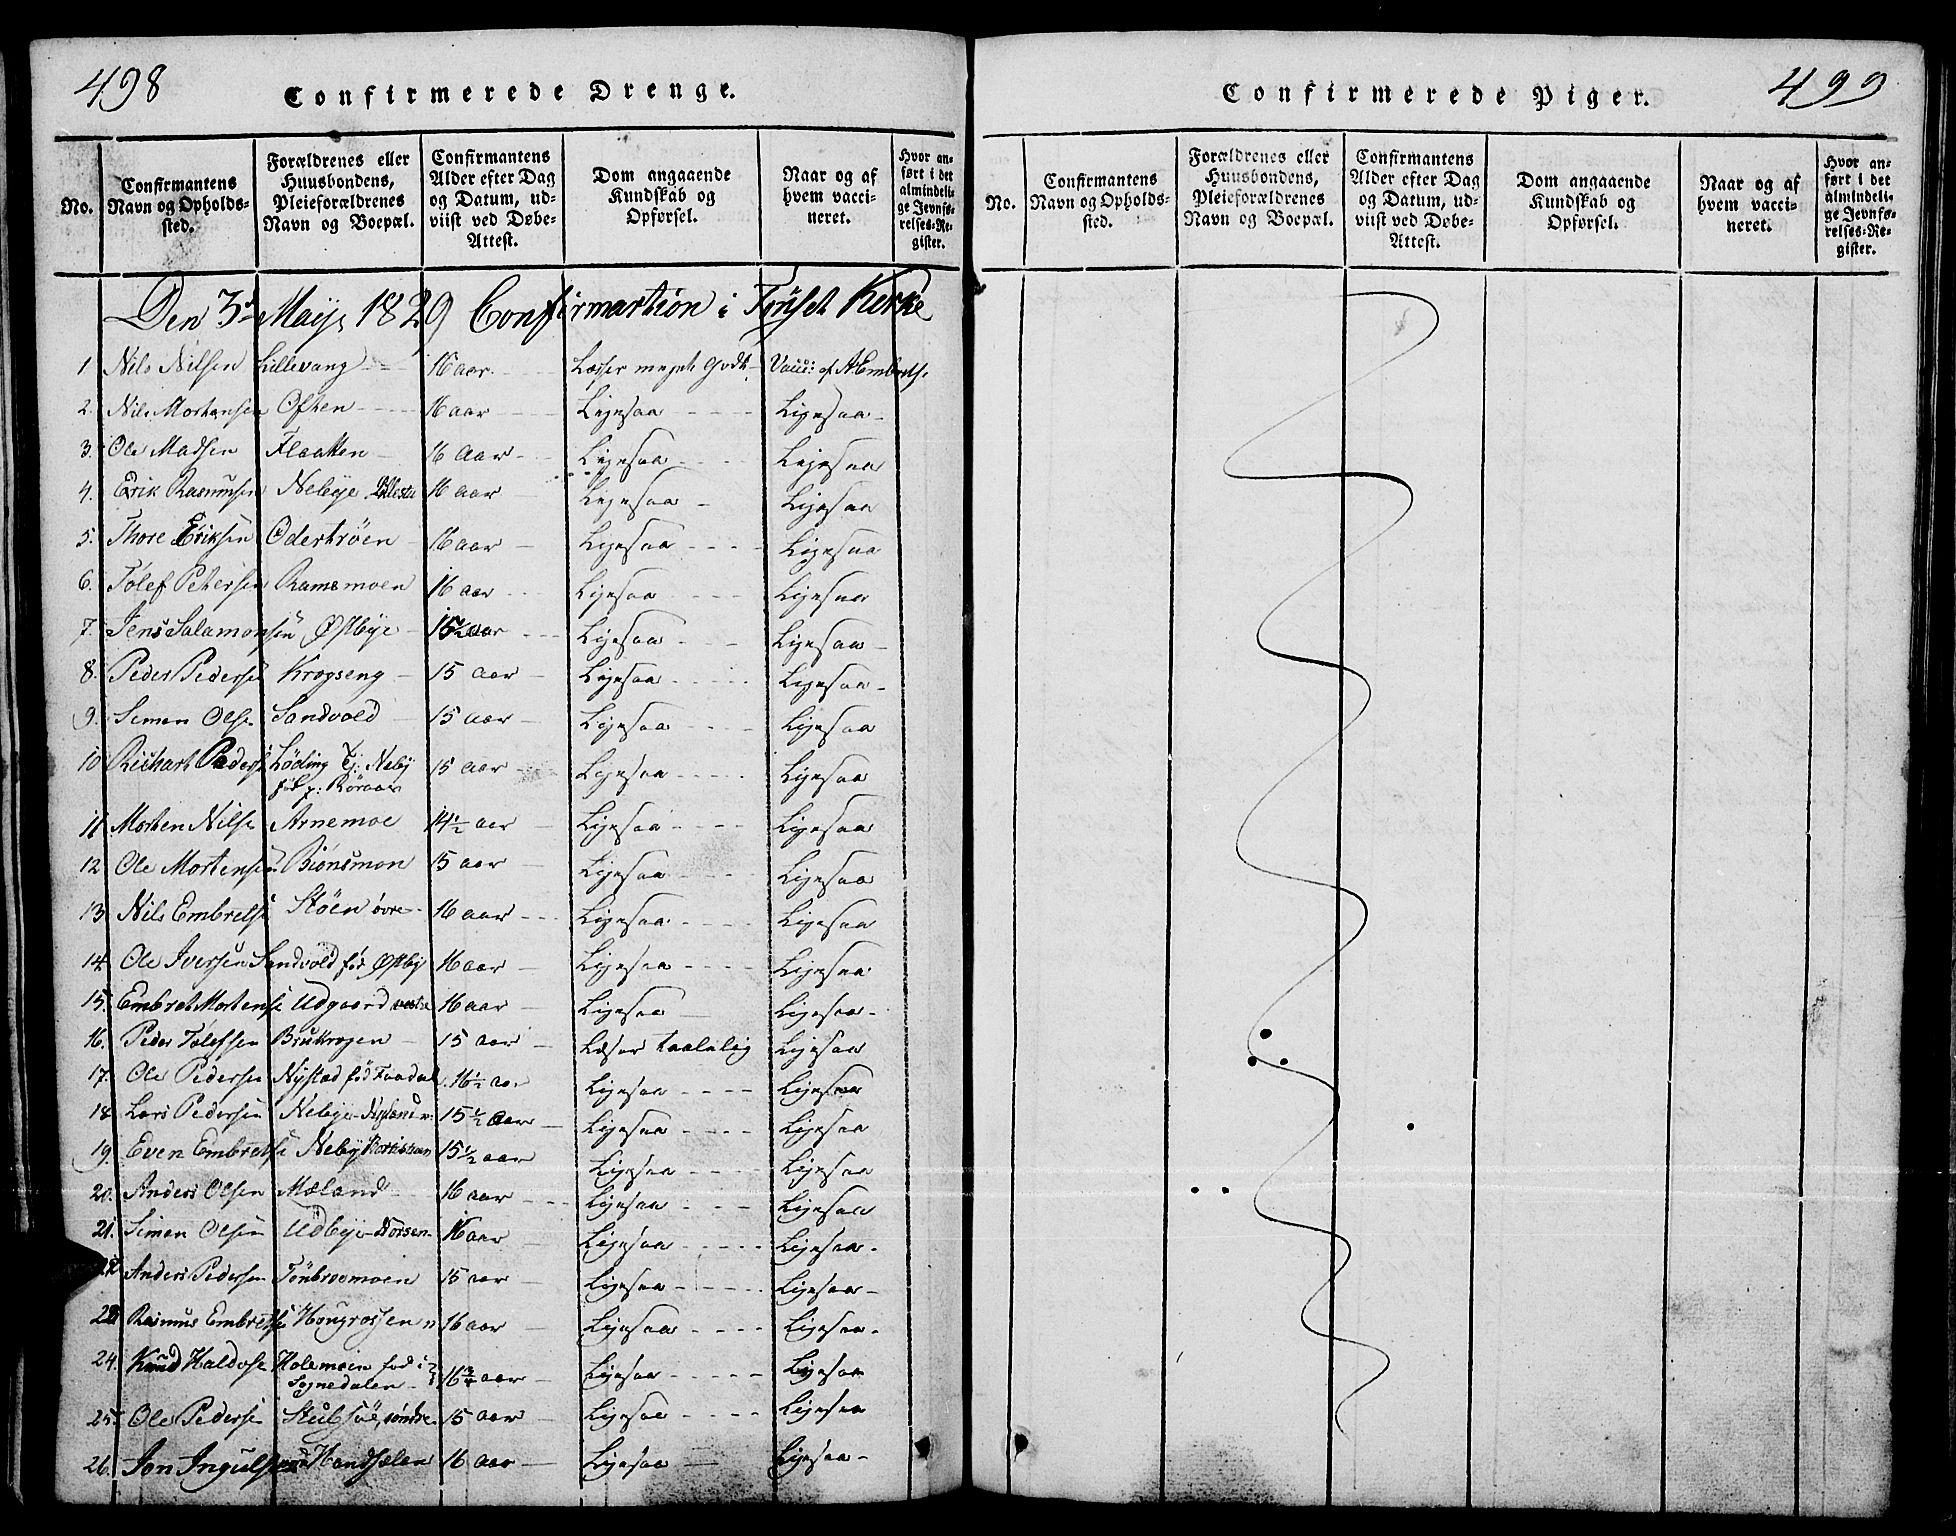 498
Confirmerede Drenge.
No.
Confirmantens Navn og Opholds-sted.
Forældrenes eller Huusbondens, Pleieforældrenes Navn og Boepæl.
Confirmantens Alder efter Dag og Datum, ud-viist ved Døbe-Attest.
Dom angaaende Kundskab og Opførsel.
Naar og af hvem vacci-neret.
Hvor an-ført i det almindeli-ge Jevnfø-relses-Re-gister.
Den 3d Maij 1829 Confirmartion i Tønset Kerke
1 Nils Nilsen Lillevang 16 aar Læsser meget Godt Vacc: af A Embrets.
2. Nils Mortensen Often 16 aar Ligesaa Ligesaa
3. Ole Madsen Flaatten 16 Aar Ligesaa Ligesaa
4. Erik Rasmusen Nebye 16 aar Ligesaa Ligesaa
5. Thore Eriksen Oderhrøen 16 aar Ligesaa Ligesaa
6. Tølef Petersen Ramsmoen 16 aar Ligesaa Ligesaa
7. Jens Salamonsen Østbye aar Ligesaa Ligesaa
8. Peder Pederse Krogseng 15 aar Ligesaa Ligesaa
9. Simen Olse Sandvold 15 aar Ligesaa Ligesaa
10 Richart Peders Løding Tj: Neby 15 aar Ligesaa Ligesaa
fød p: Røraas
11 Morten Nilse Arnemoe 14½ aar Ligesaa Ligesaa
12 Ole Mortensen Biønsmon 15 aar Ligesaa Ligesaa
13 Nils Embretse Støen øvre 16 aar Ligesaa Ligesaa
14 Ole Iversen Sandvold fød Østby 16 aar Ligesaa Ligesaa
15. Embret Mortense Udgaard vestre 16 aar Ligesaa Ligesaa
16. Peder Tølefsen Brukrogen 15 aar Læser taalelig Ligesaa
17. Ole Pedersen Nystad fød Faadal 16½ aar Ligesaa Ligesaa
18 Lars Pedersen Nebye 15½ aar Ligesaa Ligesaa
19. Even Embretse Neby 15½ aar Ligesaa Ligesaa
20. Anders Olsen Mæland 16 aar Ligesaa Ligesaa
21. Simen Olsen Udbye 16 aar Ligesaa Ligesaa
22 Anders Pedersen Tønbroemoen 15 aar Ligesaa Ligesaa
23 Rasmus Embretse 16 aar Ligesaa Ligesaa
24. Knud Haldose Holemoen fød i 16¾ aar Ligesaa Ligesaa
Sognedalen
25 Ole Pederse Stubsøe søndre 15 aar Ligesaa Ligesaa
26. Jon Ingulsen 16 aar Ligesaa Ligesaa
499
Confirmerede Piger.
No.
Confirmantens Navn og Opholds-sted.
Forældrenes eller Huusbondens, Pleieforældrenes Navn og Boepæl.
Confirmantens Alder efter Dag og Datum, ud-viist ved Døbe-Attest.
Dom angaaende Kundskab og Opførsel.
Naar og af hvem vacci-neret.
Hvor an-ført i det almindeli-ge Jevnfø-relses-Re-gister.